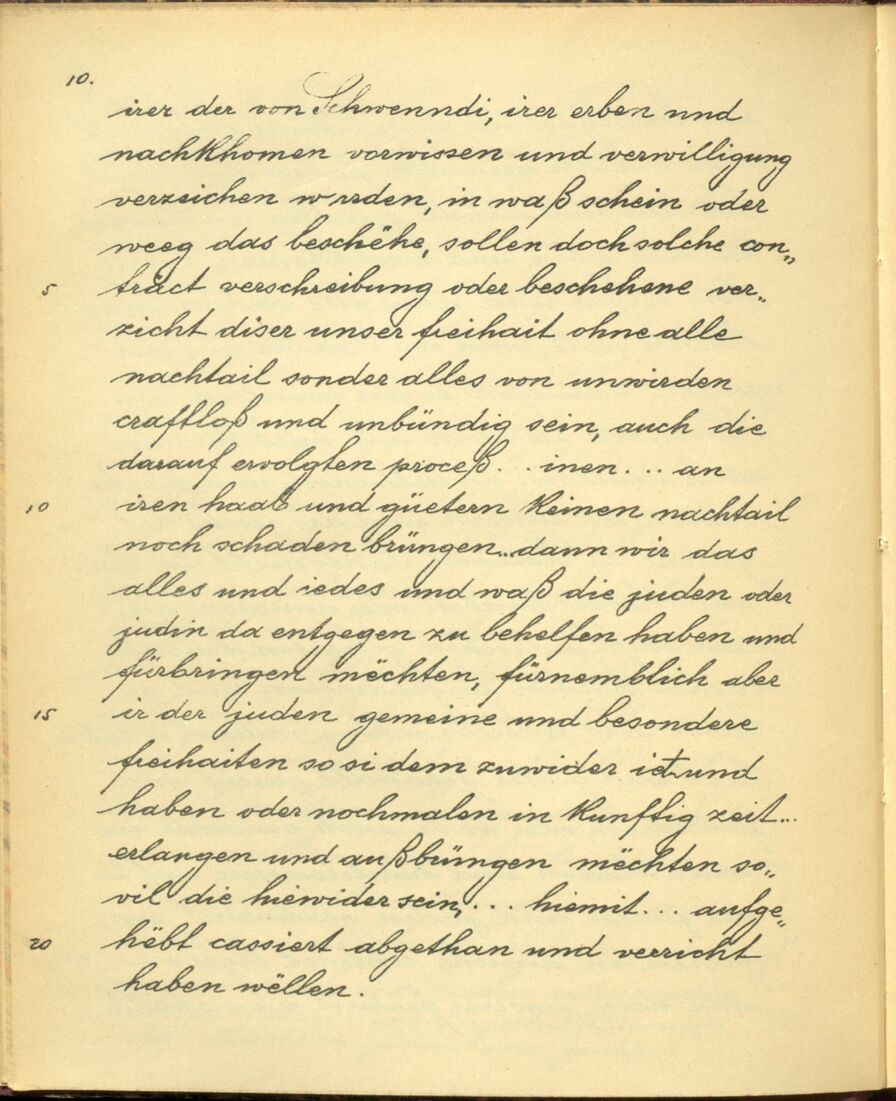 10.
irer der von Schwenndi, irer erben und
nachkhomen vorwissen und verwilligung
verzeichen wurden, in waß schein oder
weeg das beschëhe, sollen doch solche con„
5 tract verschreibung oder beschehene ver„
zicht diser unser freihait ohne alle
nachtail sonder alles von unwirden
craftloß und unbündig sein, auch die
darauf ervolgten proceß . . inen . . . an
10 iren haab und güetern keinen nachtail
noch schaden brüngen.. dann wir das
alles und iedes und waß die juden oder
judin da entgegen zu behelfen haben und
fürbringen mëchten, fürnemblich aber
15 ir der juden gemeine und besondere
freihaiten so si dem zuwider ietund
haben oder nochmalen in kunftig zeit...
erlangen und außbrüngen mëchten so„
vil die hiewider sein, . . . hiemit . . . aufge„
20 hëbt cassiert abgethan und verricht
haben wëllen.